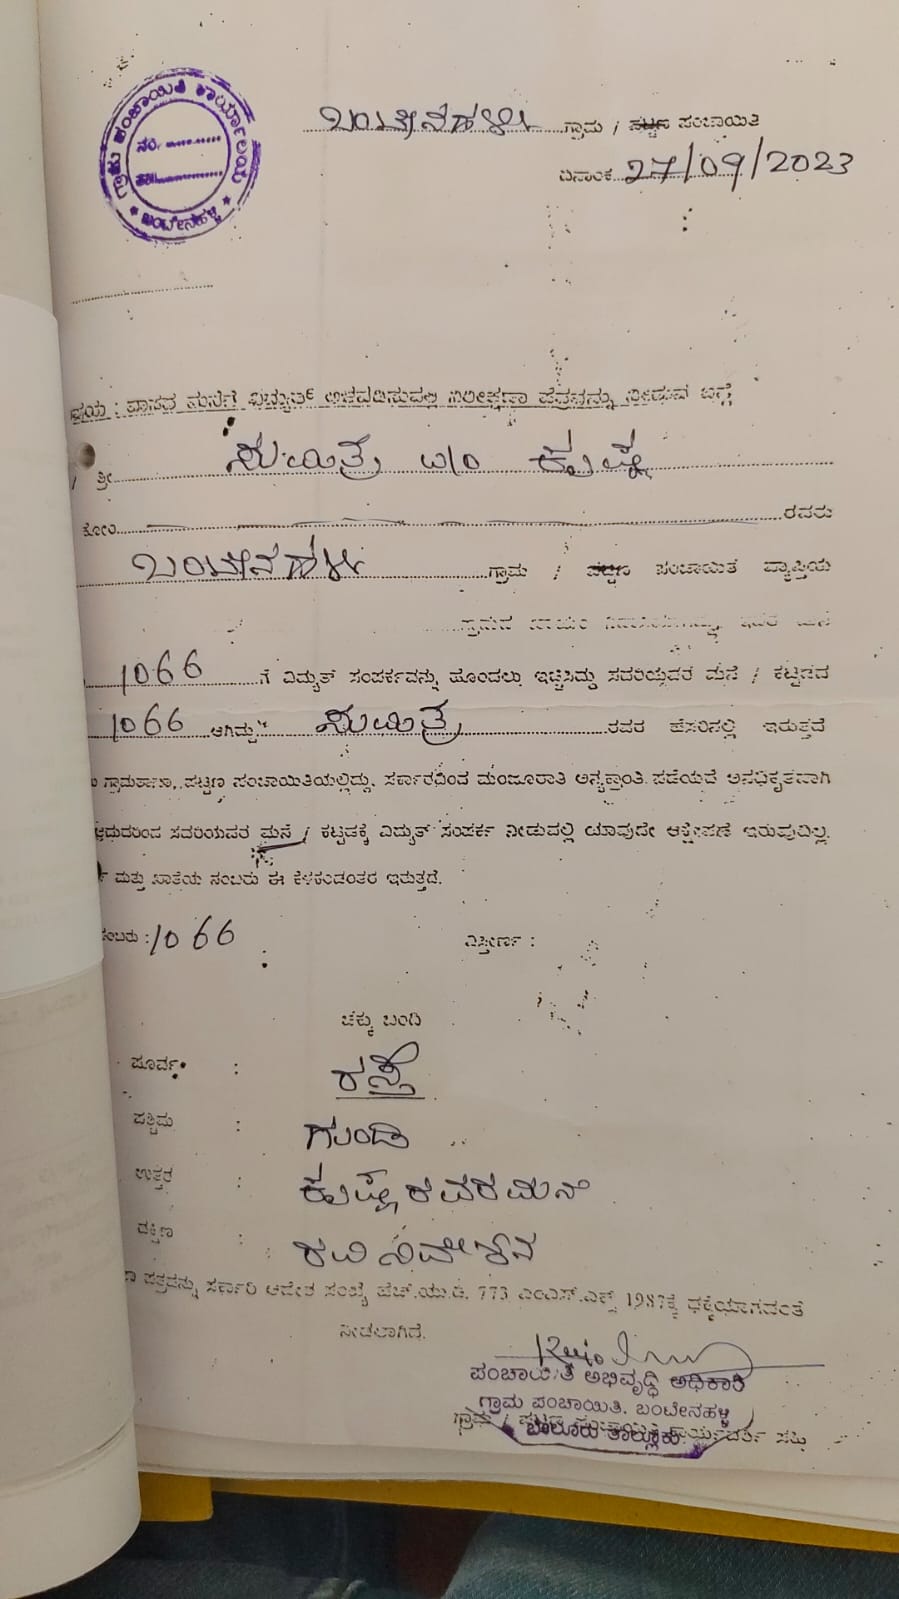 ಗ್ರಾಮ ಪಂಚಾಯಿತಿ ಕಾರ್ಯಾಲಯ
ನಂ.
ಬಂಟೇನಹಳ್ಳಿ
ಬಂಟೇನಹಳ್ಳಿ ಗ್ರಾಮ / ಪಟ್ಟಣ ಪಂಚಾಯಿತಿ
ದಿನಾಂಕ 27/09/2023
ವಾಸದ ಮನೆಗೆ ವಿದ್ಯುತ್ ಅಳವಡಿಸುವಲ್ಲಿ ನಿರೀಕ್ಷಣಾ ಪತ್ರವನ್ನು ನೀಡುವ ಬಗ್ಗೆ
ಶ್ರೀ ಸುಮಿತ್ರ ಕೃಷ್ಣ
ಕೋಂ ರವರು
ಬಂಟೇನಹಳ್ಳಿ ಗ್ರಾಮ / ಪಟ್ಟಣ ಪಂಚಾಯಿತಿ ವ್ಯಾಪ್ತಿಯ
1066 ನೆ ವಿದ್ಯುತ್ ಸಂಪರ್ಕವನ್ನು ಹೊಂದಲು ಇಚ್ಛಿಸಿದ್ದು ಸದರಿಯವರ ಮನೆ / ಕಟ್ಟಡದ
1066 ಆಗಿದ್ದು ಸುಮಿತ್ರ ರವರ ಹೆಸರಿನಲ್ಲಿ ಇರುತ್ತದೆ
ಗ್ರಾಮಠಾಣಾ, ಪಟ್ಟಣ ಪಂಚಾಯಿತಿಯಲ್ಲಿದ್ದು, ಸರ್ಕಾರದಿಂದ ಮಂಜೂರಾತಿ ಅನ್ಯಕ್ರಾಂತಿ ಪಡೆಯದೆ ಅನಧಿಕೃತವಾಗಿ
ಸದರಿಯವರ ಮನೆ / ಕಟ್ಟಡಕ್ಕೆ ವಿದ್ಯುತ್ ಸಂಪರ್ಕ ನೀಡುವಲ್ಲಿ ಯಾವುದೇ ಆಕ್ಷೇಪಣೆ ಇರುವುದಿಲ್ಲ.
ಮತ್ತು ಖಾತೆಯ ನಂಬರು ಈ ಕೆಳಕಂಡಂತೆ ಇರುತ್ತದೆ.
ನಂಬರು : 1066 ವಿಸ್ತೀರ್ಣ :
ಚಕ್ಕು ಬಂದಿ
ಪೂರ್ವ : ರಸ್ತೆ
ಪಶ್ಚಿಮ : ಗುಂಡಿ
ಉತ್ತರ : ಕೃಷ್ಣರವರ ಮನೆ
ದಕ್ಷಿಣ : ರವಿ ನಿವೇಶನ
ಪತ್ರವನ್ನು ಸರ್ಕಾರಿ ಆದೇಶ ಸಂಖ್ಯೆ ಹೆಚ್.ಯು.ಡಿ. 773 ಎಂಎನ್.ಎಕ್ಸ್ 1987ಕ್ಕೆ ಧಕ್ಕೆಯಾಗದಂತೆ
ನೀಡಲಾಗಿದೆ.
ಪಂಚಾಯಿತಿ ಅಭಿವೃದ್ಧಿ ಅಧಿಕಾರಿ
ಗ್ರಾಮ ಪಂಚಾಯಿತಿ. ಬಂಟೇನಹಳ್ಳಿ
ತಾಲ್ಲೂಕು